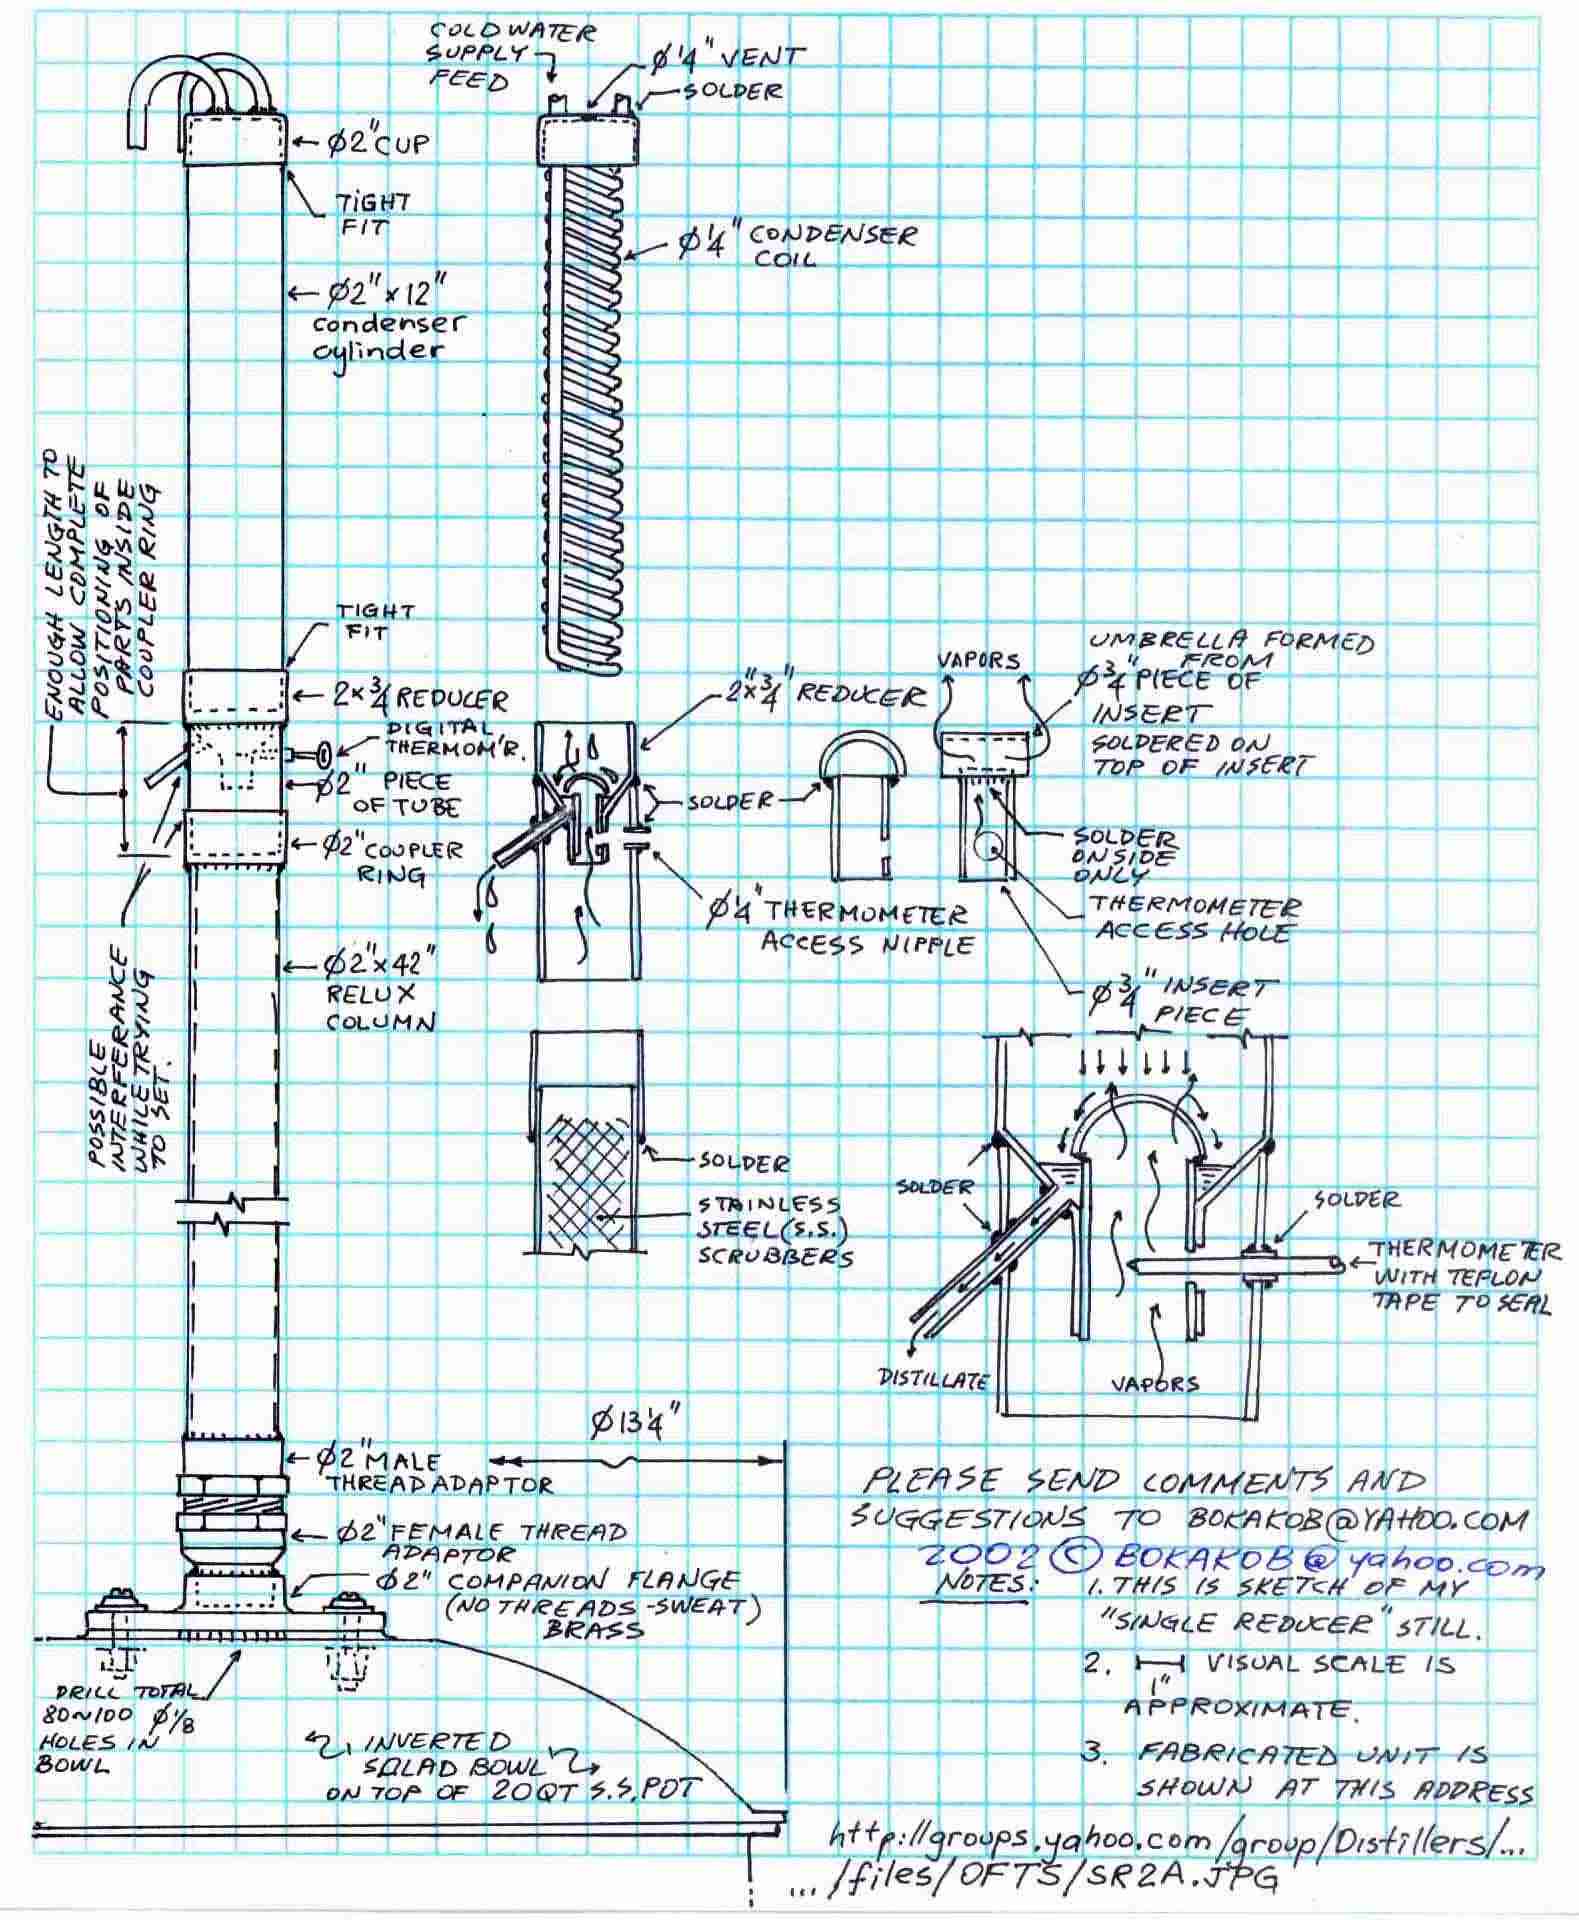 COLD WATER
SUPPLY
FEED
Ø1/4" VENT
SOLDER
Ø2" CUP
TIGHT
FIT
Ø1/4" CONDENSER
COIL
Ø2" x 12"
condenser
cylinder
ENOUGH LENGTH TO
ALLOW COMPLETE
POSITIONING OF
PARTS INSIDE
COUPLER RING
TIGHT
FIT
2 x 3/4 REDUCER
DIGITAL
THERMOM'R.
Ø2" PIECE
OF TUBE
Ø2" COUPLER
RING
2" x 3/4" REDUCER
SOLDER
Ø1/4" THERMOMETER
ACCESS NIPPLE
VAPORS
UMBRELLA FORMED
FROM
Ø3/4" PIECE OF
INSERT
SOLDERED ON
TOP OF INSERT
SOLDER
ON SIDE
ONLY
THERMOMETER
ACCESS HOLE
Ø3/4" INSERT
PIECE
Ø2" x 42"
RELUX
COLUMN
POSSIBLE
INTERFERANCE
WHILE TRYING
TO SET.
SOLDER
STAINLESS
STEEL (S.S.)
SCRUBBERS
SOLDER
SOLDER
THERMOMETER
WITH TEFLON
TAPE TO SEAL
DISTILLATE
VAPORS
Ø13 1/4"
Ø2" MALE
THREAD ADAPTOR
Ø2" FEMALE THREAD
ADAPTOR
Ø2" COMPANION FLANGE
(NO THREADS -SWEAT)
BRASS
DRILL TOTAL
80~100 Ø1/8
HOLES IN
BOWL
INVERTED
SALAD BOWL
ON TOP OF 20QT S.S. POT
PLEASE SEND COMMENTS AND
SUGGESTIONS TO BOKAKOB@YAHOO.COM
2002 © BOKAKOB@yahoo.com
NOTES: 1. THIS IS SKETCH OF MY
"SINGLE REDUCER" STILL.
2. VISUAL SCALE IS
1"
APPROXIMATE.
3. FABRICATED UNIT IS
SHOWN AT THIS ADDRESS
http://groups.yahoo.com/group/Distillers/...
.../files/OFTS/SR2A.JPG